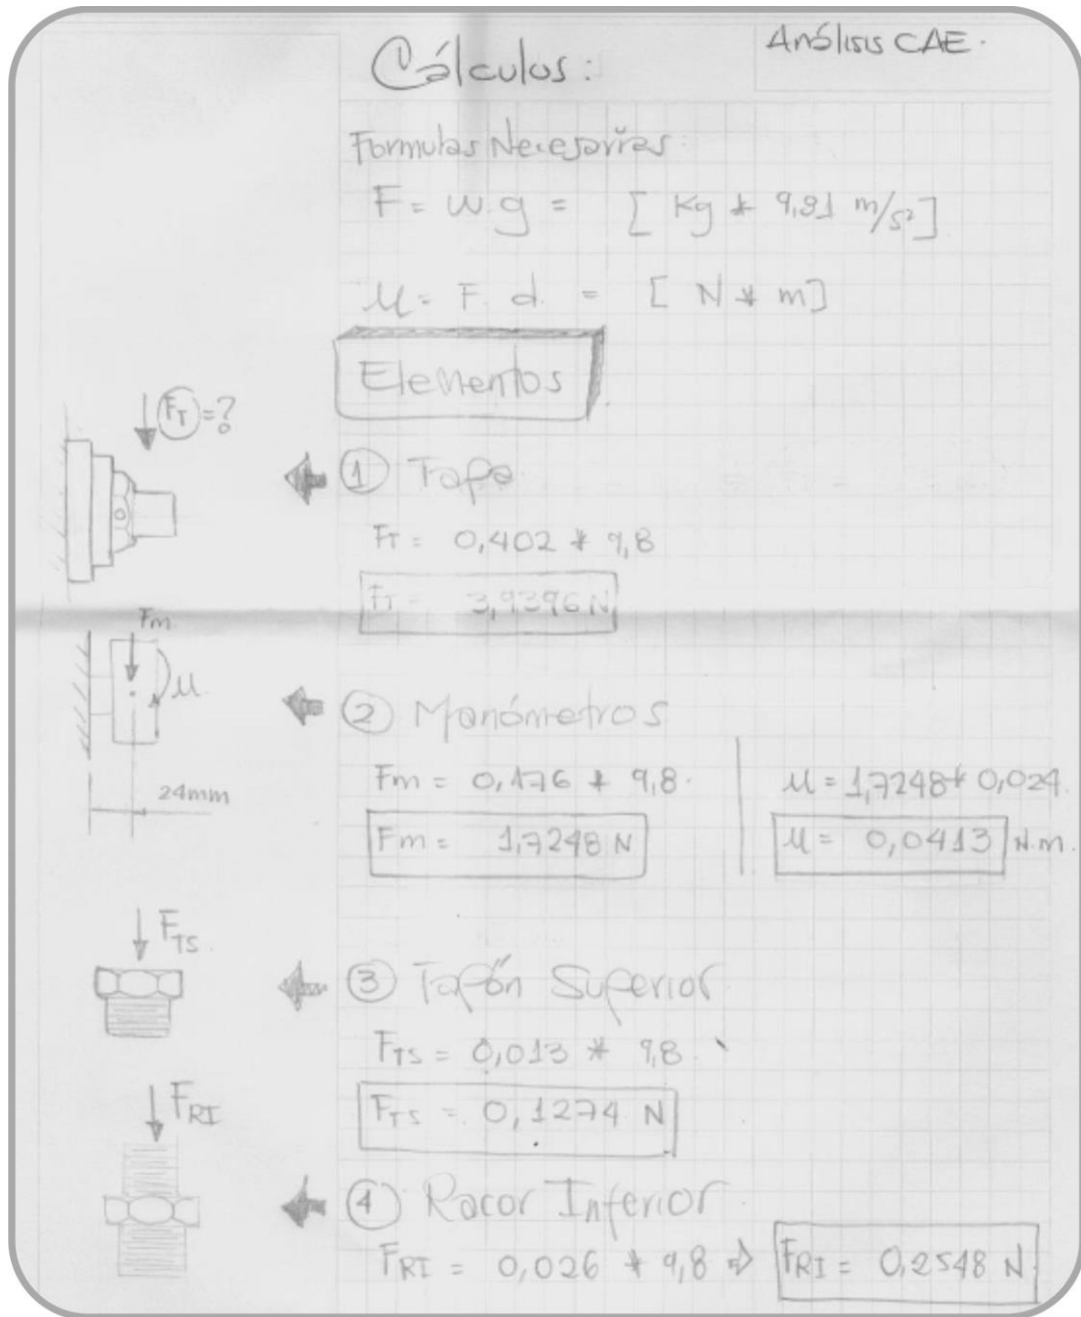 Análisis CAE.
Cálculos:
Formulas Necesarias:
F = w.g = [ Kg * 9,81 m/s²]
M = F. d. = [ N * m]
Elementos
F_T = ?
① Tapa
F_T = 0,402 * 9,8
F_T = 3,9396 N
Fm
M
24mm
② Manómetros
Fm = 0,176 * 9,8.
Fm = 1,7248 N
M = 1,7248 * 0,024.
M = 0,0413 N.m.
F_TS.
③ Tapón Superior
F_TS = 0,013 * 9,8.
F_TS = 0,1274 N
F_RI
④ Racor Inferior
F_RI = 0,026 * 9,8 ⇒ F_RI = 0,2548 N